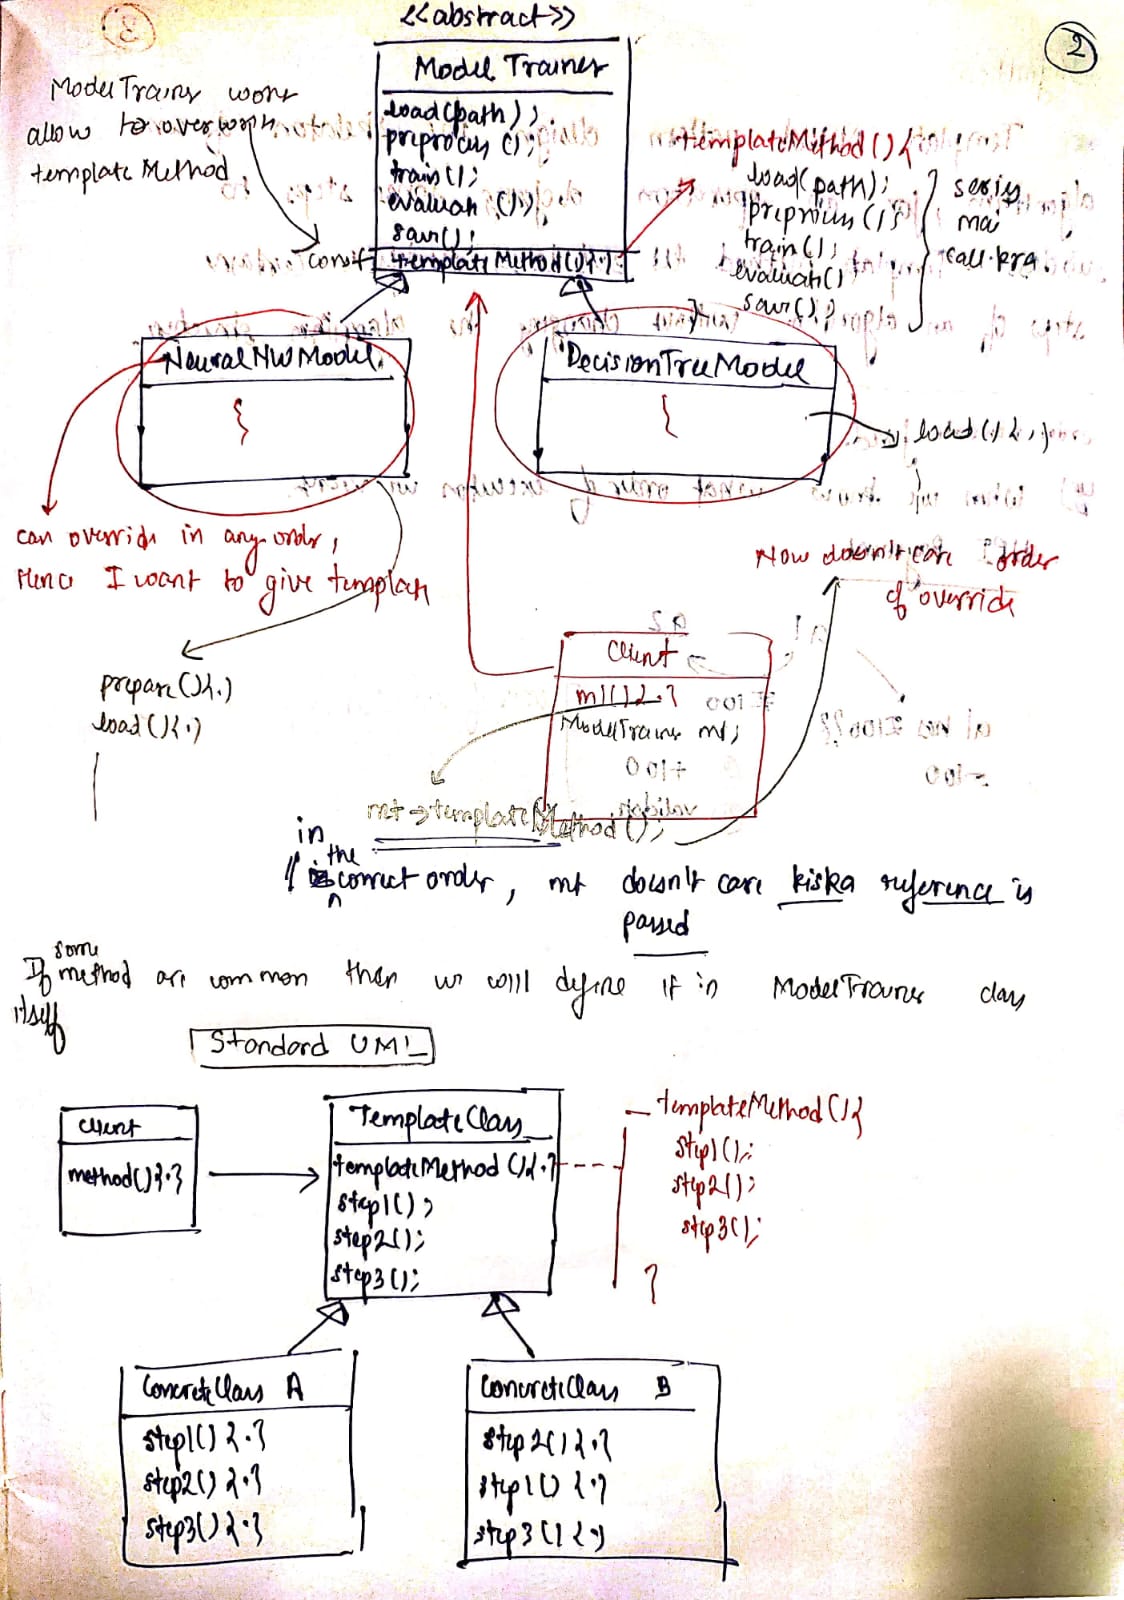 2
<<abstract>>
Model Trainer
load(path);
preprocess();
train();
evaluate();
save();
const templateMethod(){.}
ModelTrainer won't
allow to
template Method
templateMethod(){
load(path);
train();
evaluate()
save();}
NeuralNWModel
{
DecisionTreeModel
{
load(){.}
can override in any order,
Hence I want to give template
Now doesn't care order
of override
prepare(){.}
load(){.}
Client
m1(){.}
ModelTrainer mt;
mt->templateMethod();
in
the
// correct order, mt doesn't care kiska reference is
passed
some
If method are common then we will define it in ModelTrainer class
itself
Standard UML
Client
method(){.}
TemplateClass
templateMethod(){.}
step1();
step2();
step3();
templateMethod(){
step1();
step2();
step3();
}
ConcreteClass A
step1(){.}
step2(){.}
step3(){.}
ConcreteClass B
step2(){.}
step1(){.}
step3(){.}